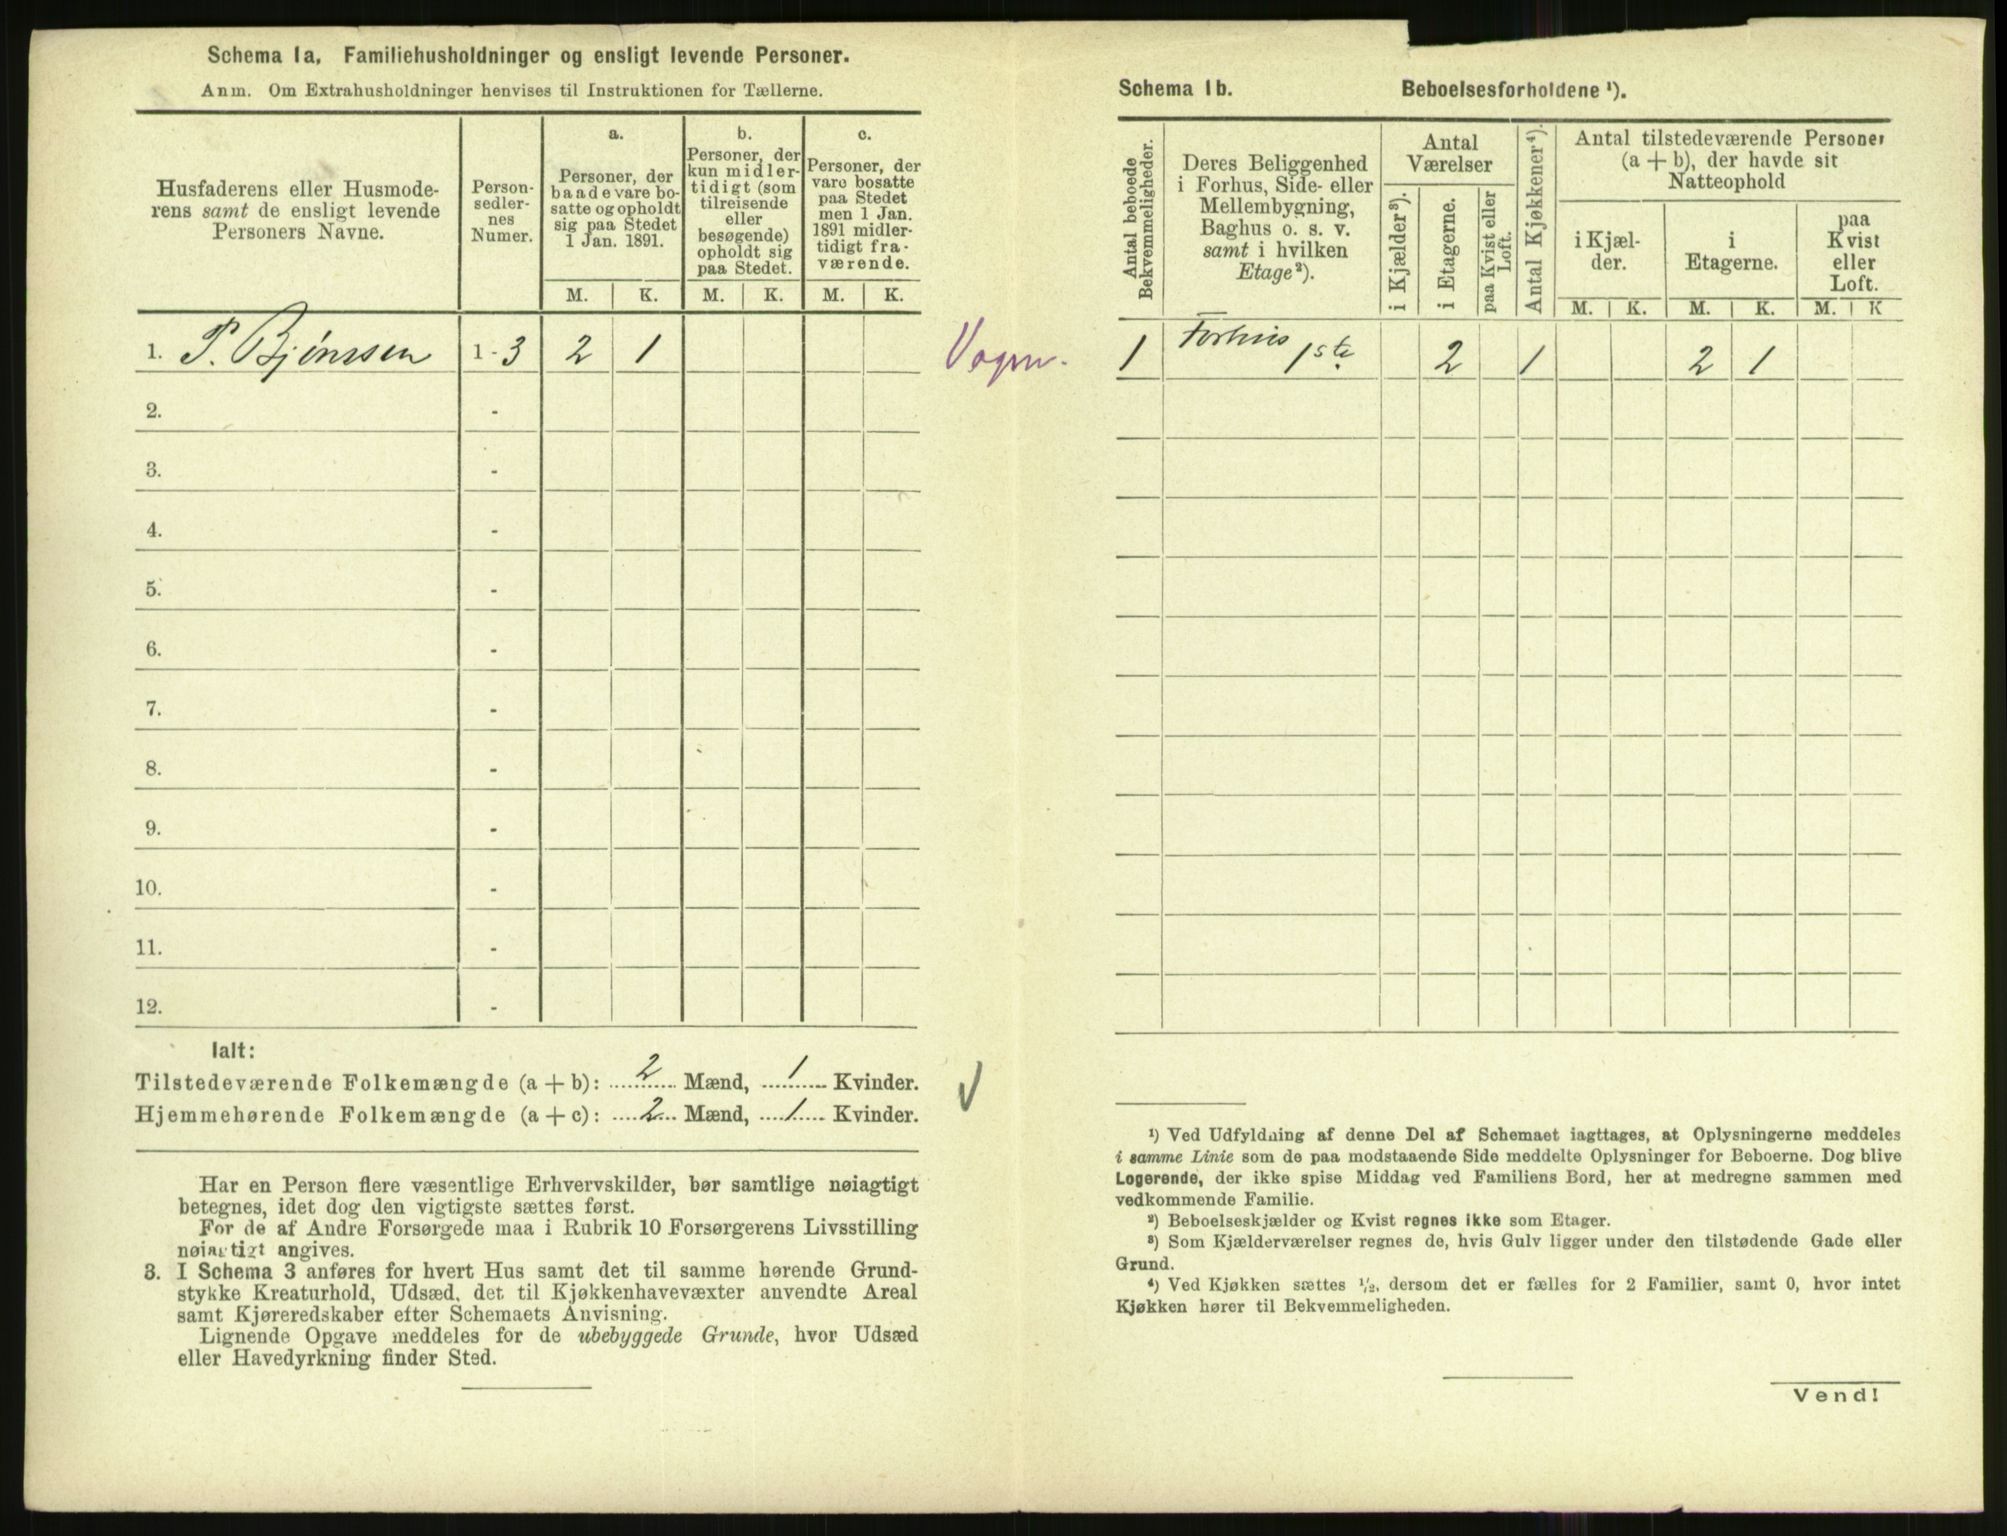 Schema 1a. Familiehusholdninger og ensligt levende Personer.
Anm. Om Extrahusholdninger henvises til Instruktionen for Tællerne.
Husfaderens eller Husmode-
rens samt de ensligt levende
Personers Navne.
Person-
sedler-
nes
Numer.
a.
Personer, der
baade vare bo-
satte og opholdt
sig paa Stedet
1 Jan. 1891.
b.
Personer, der
kun midler-
tidigt (som
tilreisende
eller
besøgende)
opholdt sig
paa Stedet.
c.
Personer, der
vare bosatte
paa Stedet
men 1 Jan.
1891 midler-
tidigt fra-
værende.
M. K. M. K. M. K.
1. P. Bjønssen 1 - 3 2 1
2. -
3. -
4. -
5. -
6. -
7. -
8. -
9. -
10. -
11. -
12. -
Ialt:
Tilstedeværende Folkemængde (a + b): 2 Mænd, 1 Kvinder.
Hjemmehørende Folkemængde (a + c): 2 Mænd, 1 Kvinder.
Har en Person flere væsentlige Erhvervskilder, bør samtlige nøiagtigt
betegnes, idet dog den vigtigste sættes først.
For de af Andre Forsørgede maa i Rubrik 10 Forsørgerens Livsstilling
nøiagtigt angives.
3. I Schema 3 anføres for hvert Hus samt det til samme hørende Grund-
stykke Kreaturhold, Udsæd, det til Kjøkkenhavevæxter anvendte Areal
samt Kjøreredskaber efter Schemaets Anvisning.
Lignende Opgave meddeles for de ubebyggede Grunde, hvor Udsæd
eller Havedyrkning finder Sted.
Schema 1b. Beboelsesforholdene ¹).
Antal beboede
Bekvemmeligheder.
Deres Beliggenhed
i Forhus, Side- eller
Mellembygning,
Baghus o. s. v.
samt i hvilken
Etage ²).
Antal
Værelser
i Kjælder ³).
i Etagerne.
paa Kvist eller
Loft.
Antal Kjøkkener ⁴).
Antal tilstedeværende Personer
(a + b), der havde sit
Natteophold
i Kjæl-
der.
i
Etagerne.
paa
Kvist
eller
Loft.
M. K. M. K. M. K
1 Forhus 1ste 2 1 2 1
¹) Ved Udfyldning af denne Del af Schemaet iagttages, at Oplysningerne meddeles
i samme Linie som de paa modstaaende Side meddelte Oplysninger for Beboerne. Dog blive
Logerende, der ikke spise Middag ved Familiens Bord, her at medregne sammen med
vedkommende Familie.
²) Beboelseskjælder og Kvist regnes ikke som Etager.
³) Som Kjælderværelser regnes de, hvis Gulv ligger under den tilstødende Gade eller
Grund.
⁴) Ved Kjøkken sættes ½, dersom det er fælles for 2 Familier, samt 0, hvor intet
Kjøkken hører til Bekvemmeligheden.
Vend!